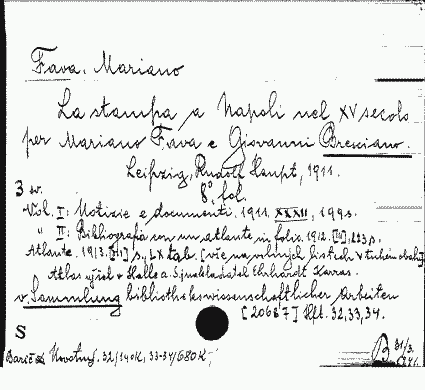 Fava, Mariano
La stampa a Napoli nel XV secolo
per Mariano Fava e Giovanni Bresciano.
Leipzig, Rudolf Haupt, 1911.
3 sv. 8°, fol.
Vol. I: Notizie e documenti. 1911. XXXII, 199 s.
" II: Bibliografia con un atlante in folio. 1912. 223 s.
Atlante. 1913. s, LX tab. [vše na volných listech v tuhém obalu]
Atlas vyšel v Halle a. S. nakladatel Ehrhardt Karras.
v. Sammlung bibliothekswissenschaftlicher Arbeiten
[20687] Hft. 32, 33, 34.
S
B 31/3.
32/140K, 33-34/680K,